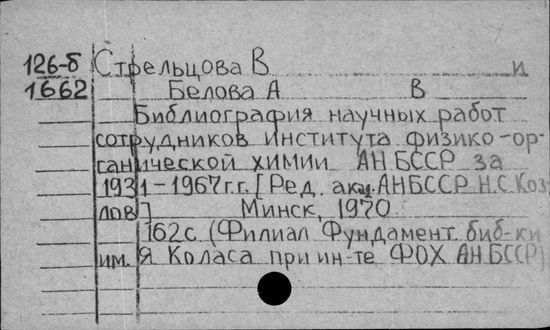 126-б Стрельцова В и
1662 Белова А В
Библиография научных работ
сотрудников института физико-ор-
ганической химии АН БССР за
1931-1967г.г. [Ред. акад. АНБССР Н.С. Коз-
лов] Минск, 1970
162с (Филиал Фундамент. биб-ки
им. Я Коласа при ин-те ФОХ АН БССР)